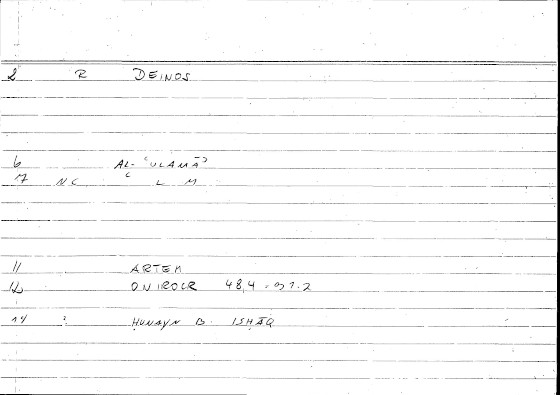 2 R DEINOS
6 AL-ʿULAMĀʾ
7 NC ʿ L M
11 ARTEM
12 ONIROCR 48,4
14 : ḤUNAYN B. ISḤĀQ